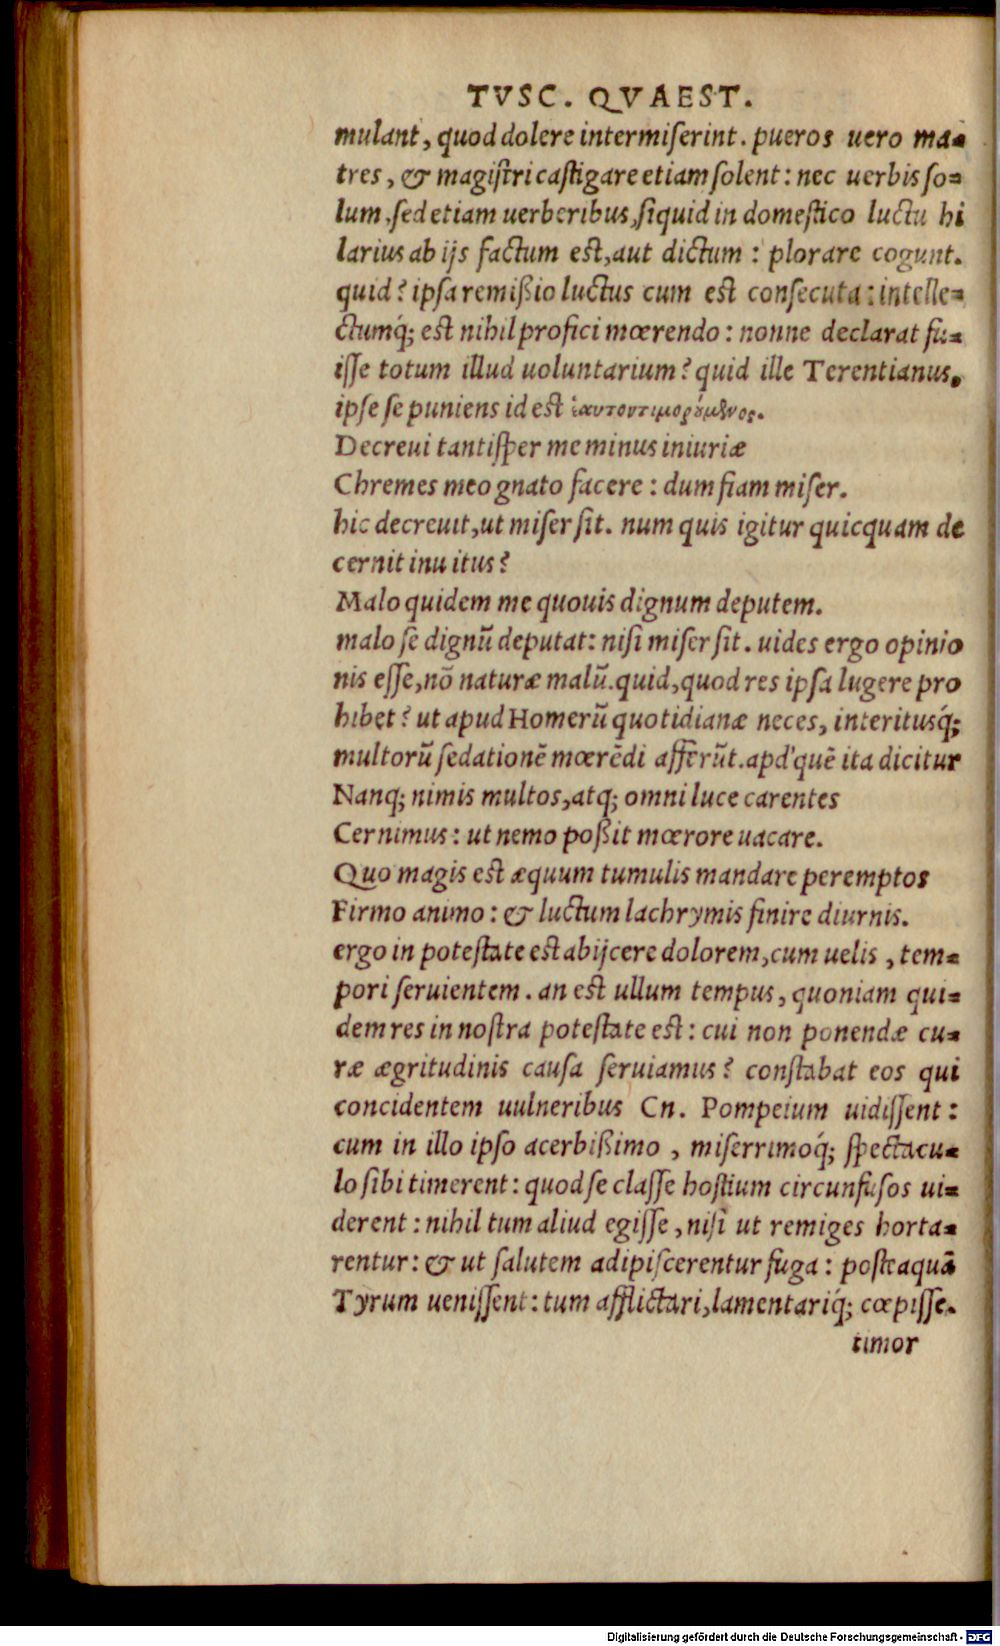 TVSC. QVAEST.
mulant, quod dolere intermiſerint. pueros uero ma-
tres, & magiſtri caſtigare etiam ſolent: nec uerbis ſo-
lum, ſed etiam uerberibus, ſi quid in domeſtico luctu hi
larius ab ijs factum eſt, aut dictum: plorare cogunt.
quid? ipſa remißio luctus cum eſt conſecuta: intelle-
ctumq́; eſt nihil profici mœrendo: nonne declarat fu-
iſſe totum illud uoluntarium? quid ille Terentianus,
ipſe ſe puniens id eſt
Decreui tantiſper me minus iniuriæ
Chremes meo gnato facere: dum fiam miſer.
hic decreuit, ut miſer ſit. num quis igitur quicquam de
cernit inuitus?
Malo quidem me quouis dignum deputem.
malo ſe dignũ deputat: niſi miſer ſit. uides ergo opinio
nis eſſe, nõ naturæ malũ. quid, quod res ipſa lugere pro
hibet? ut apud Homerũ quotidianæ neces, interitusq́;
multorũ ſedationẽ mœrẽdi afferũt. apd' quẽ ita dicitur
Nanq; nimis multos, atq; omni luce carentes
Cernimus: ut nemo poßit mœrore uacare.
Quo magis eſt æquum tumulis mandare peremptos
Firmo animo: & luctum lachrymis finire diurnis.
ergo in poteſtate eſt abijcere dolorem, cum uelis, tem-
pori ſeruientem. an eſt ullum tempus, quoniam qui-
dem res in noſtra poteſtate eſt: cui non ponendæ cu-
ræ ægritudinis cauſa ſeruiamus? conſtabat eos qui
concidentem uulneribus Cn. Pompeium uidiſſent:
cum in illo ipſo acerbißimo, miſerrimoq́; ſpectacu-
lo ſibi timerent: quod ſe claſſe hoſtium circunfuſos ui-
derent: nihil tum aliud egiſſe, niſi ut remiges horta-
rentur: & ut ſalutem adipiſcerentur fuga: poſteaquã
Tyrum ueniſſent: tum afflictari, lamentariq́; cœpiſſe.
timor
Digitalisierung gefördert durch die Deutsche Forschungsgemeinschaft - DFG